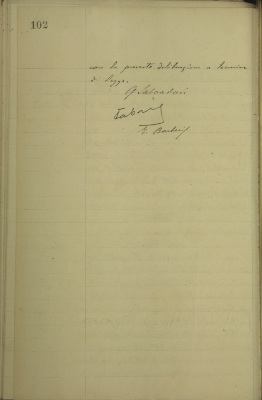 102
con la presente deliberazione a termini
di legge.
G Salvadori